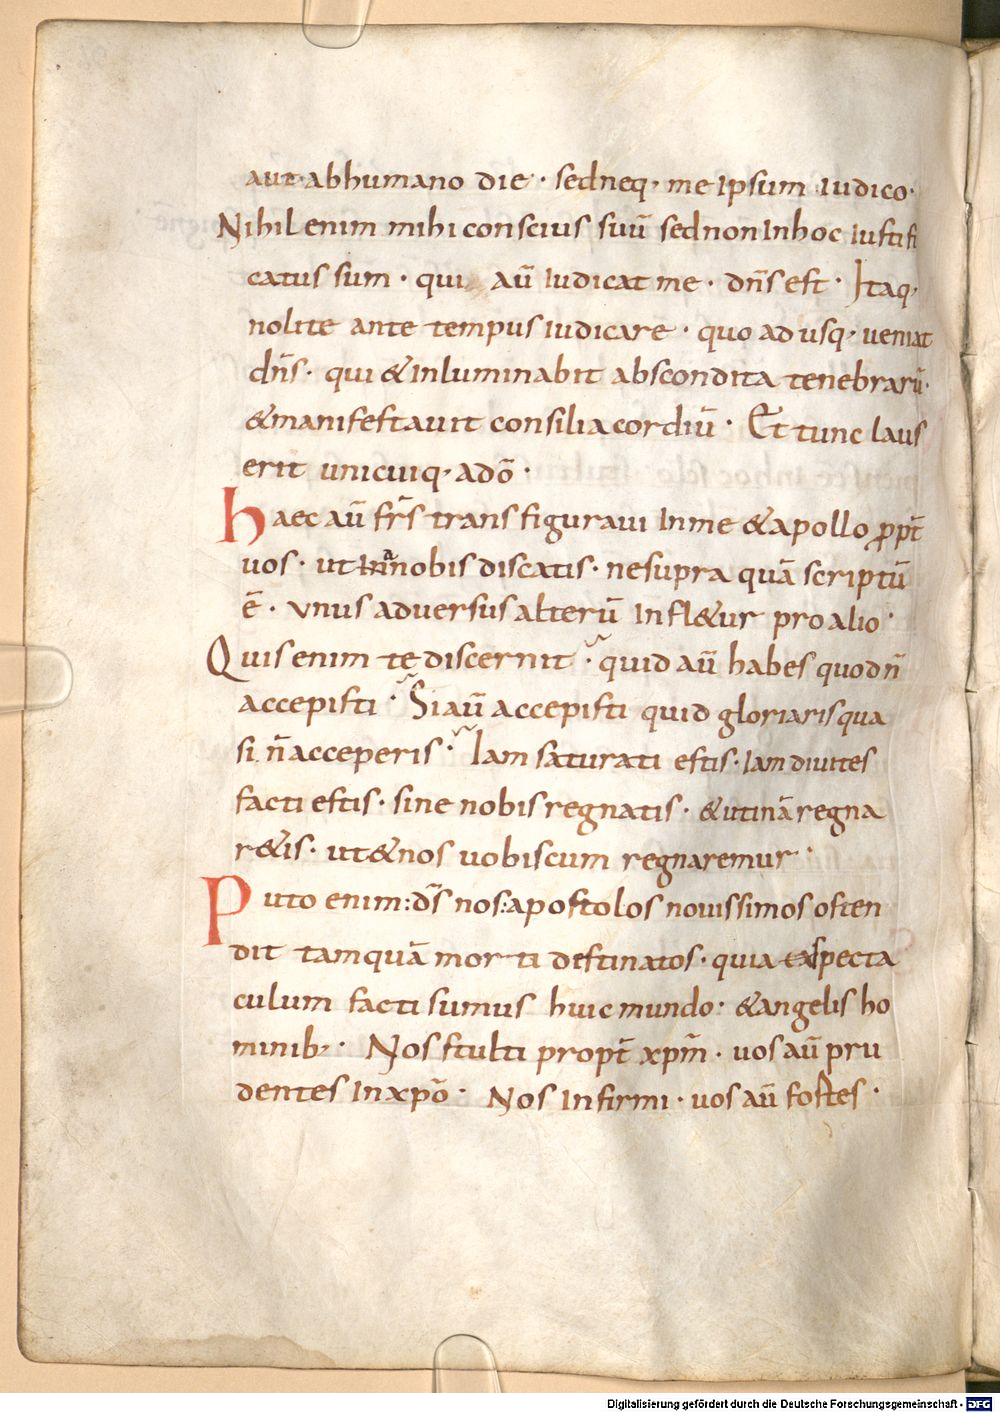 aut·abhumano die· sedneq· me Ipsum Iudico·
Nihil enim mihi conscius suū sed non Inhoc Iustifi
catus sum· qui aū Iudicat me· dn̄s est· Itaq·
nolite ante tempus Iudicare· quo ad usq· ueniat
dn̄s· qui & Inluminabit abscondita tenebrarū·
& manifestauit consilia cordiū· Et tunc laus
erit unicuiq· adō·
Haec aū fr̄s transfiguraui Inme & apollo ppt̄
uos· ut nobis discatis· nesupra quā scriptū
ē· Vnus aduersus alterū Infl&ur pro alio·
Quis enim te discernit· quid aū habes quod n̄
accepisti· Si aū accepisti quid gloriaris qua
si n̄ acceperis· Iam saturati estis· Iam diuites
facti estis· sine nobis regnatis· & utinā regna
r&is· ut & nos uobiscum regnaremur·
Puto enim: dS̄ nos: apostolos nouissimos osten
dit tamquā morti destinatos· quia specta
culum facti sumus huic mundo· & angelis ho
minib· Nos stulti propt̄ xpm̄· uos aū pru
dentes Inxpō· Nos Infirmi· uos aū fortes·
Digitalisierung gefördert durch die Deutsche Forschungsgemeinschaft - DFG